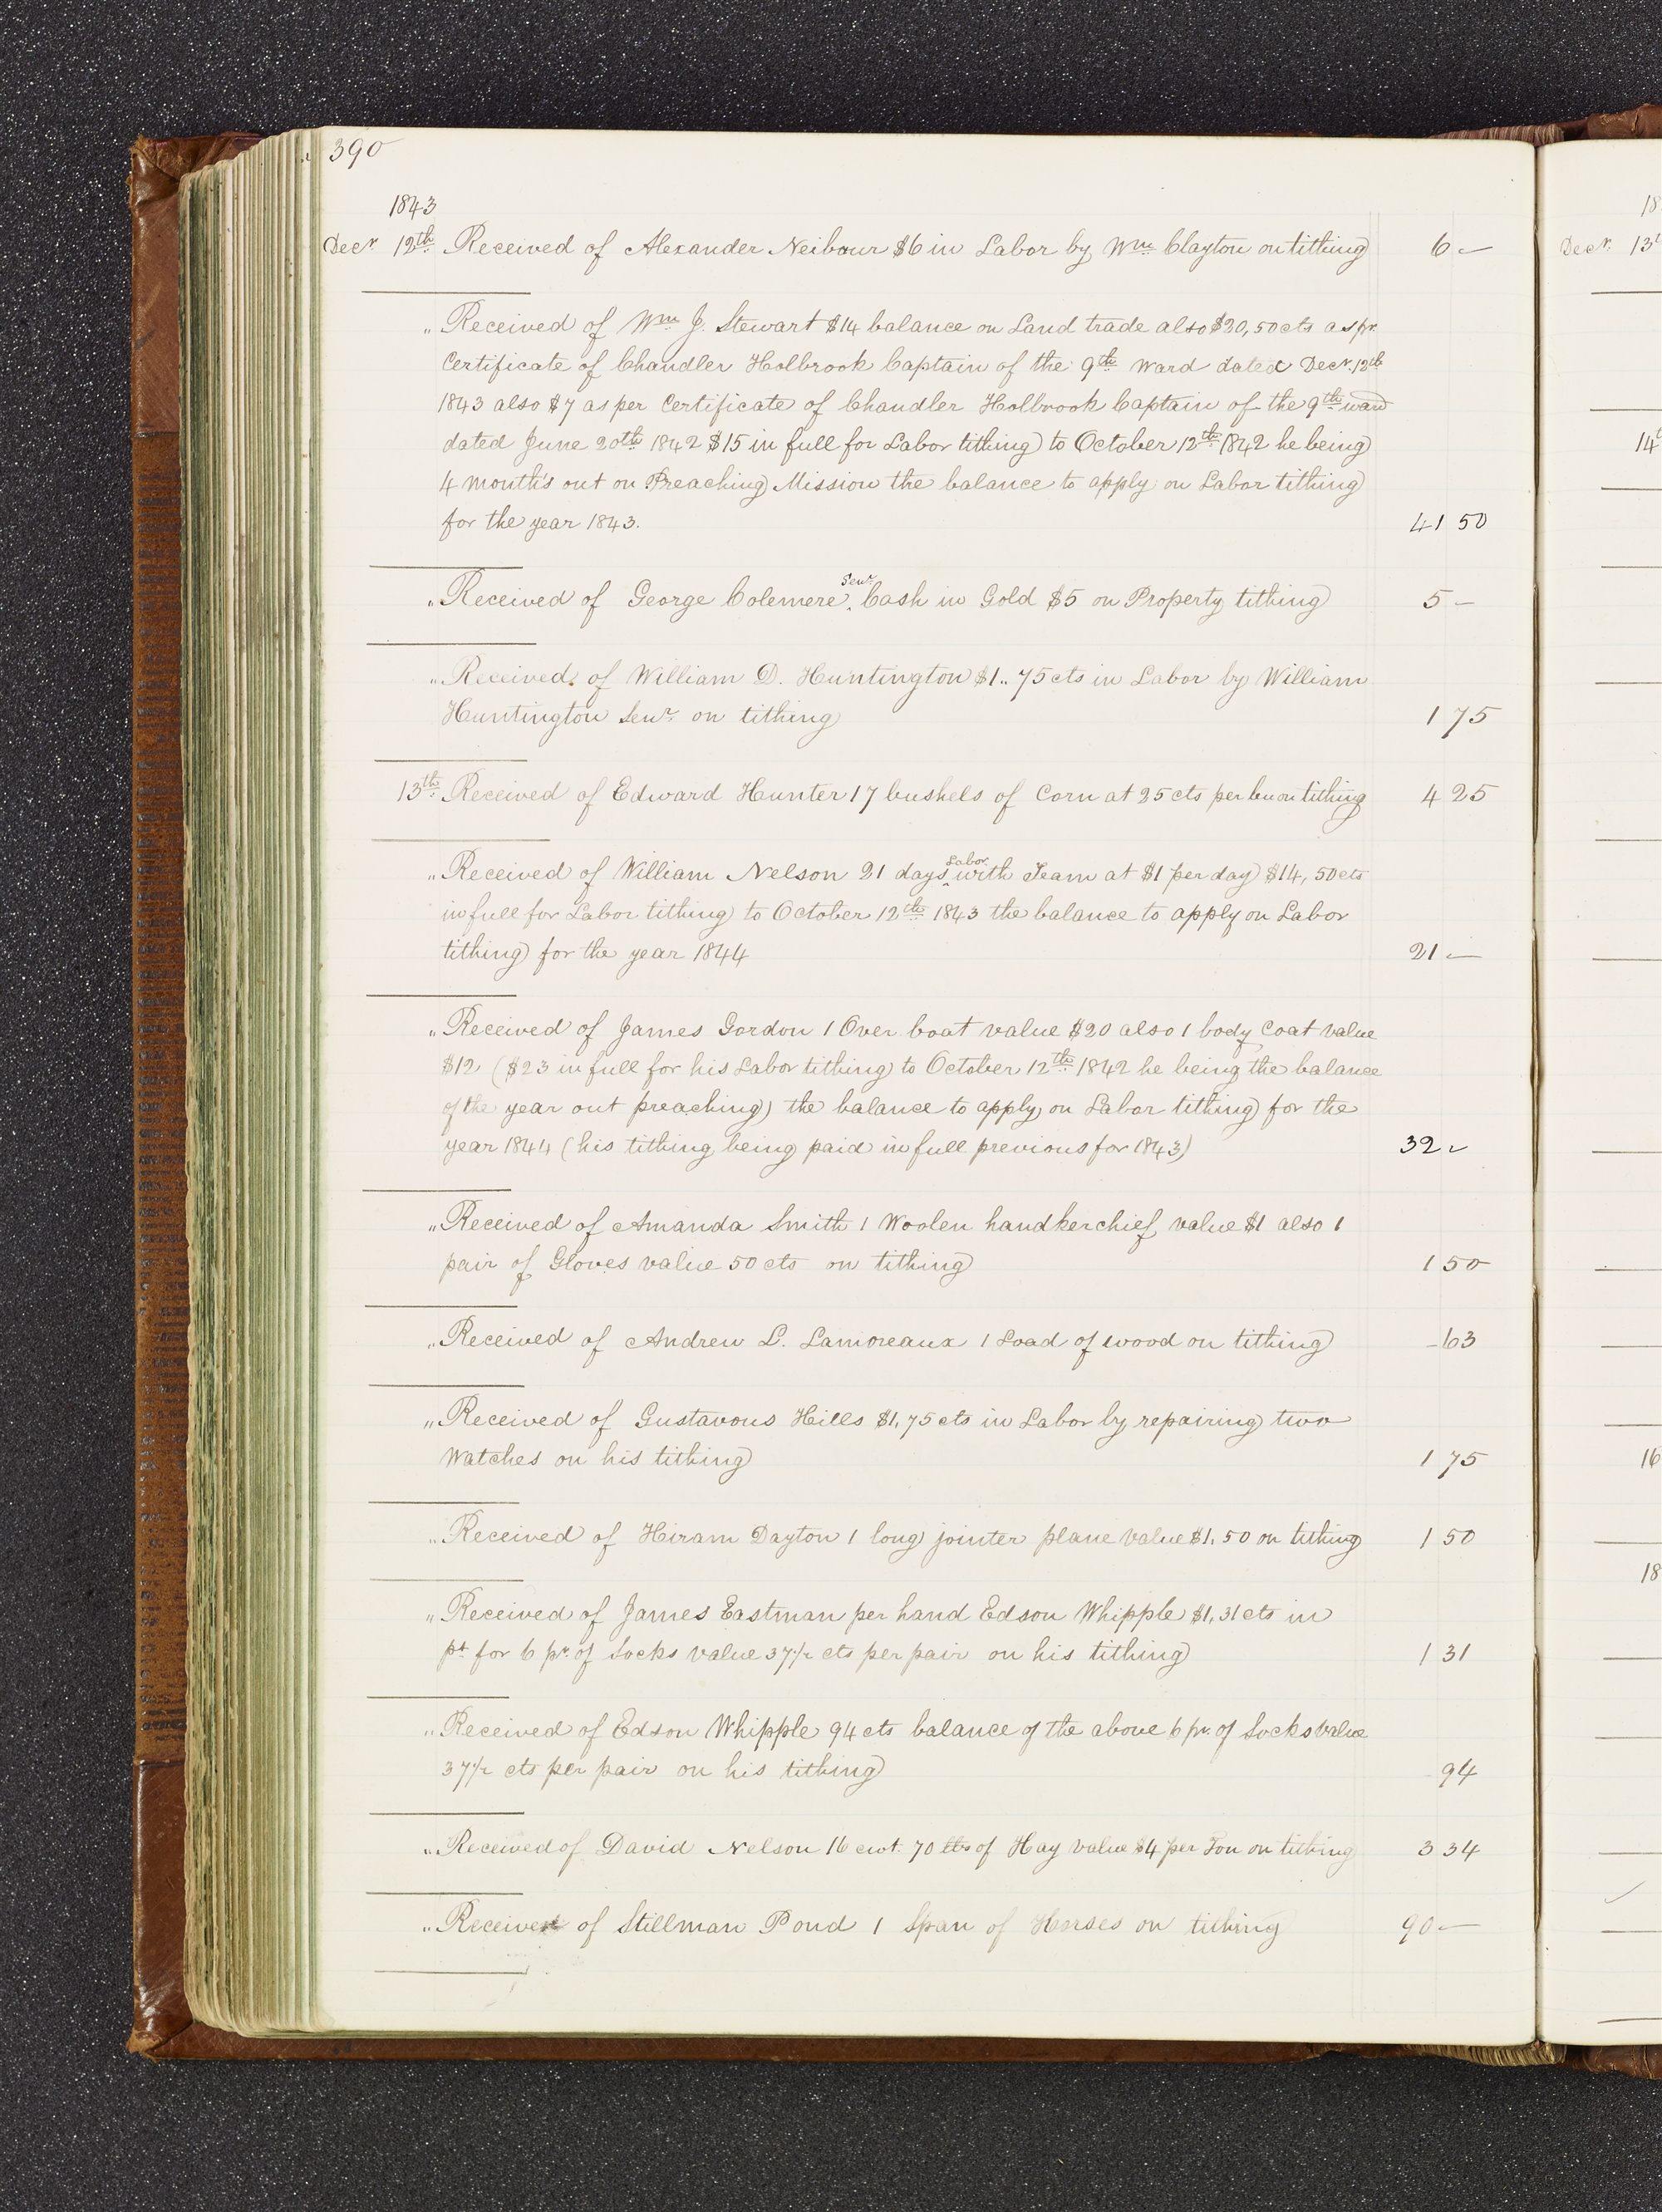 390
1843
Decr. 12th Received of Alexander Neibour $6 in Labor by Wm Clayton on tithing 6 —
" Received of Wm J. Stewart $14 balance on Land trade also $20,50 cts as pr.
Certificate of Chandler Holbrook Captain of the 9th Ward dated Decr. 12th
1843 also $7 as per Certificate of Chandler Holbrook Captain of the 9th ward
dated June 20th 1842 $15 in full for Labor tithing to October 12th 1842 he being
4 month's out on Preaching Mission the balance to apply on Labor tithing
for the year 1843. 41 50
" Received of George Colemere Senr. Cash in Gold $5 on Property tithing 5 —
" Received of William D. Huntington $1..75 cts in Labor by William
Huntington Senr. on tithing 1 75
13th Received of Edward Hunter 17 bushels of Corn at 25 cts per bu on tithing 4 25
" Received of William Nelson 21 days Labor with Team at $1 per day $14,50 cts
in full for Labor tithing to October 12th 1843 the balance to apply on Labor
tithing for the year 1844 21 —
" Received of James Gordon 1 Over Coat value $20 also 1 body Coat value
$12 ($23 in full for his Labor tithing to October 12th 1842 he being the balance
of the year out preaching) the balance to apply on Labor tithing for the
year 1844 (his tithing being paid in full previous for 1843) 32 -
" Received of Amanda Smith 1 Woolen handkerchief value $1 also 1
pair of Gloves value 50 cts on tithing 1 50
" Received of Andrew L. Lamoreaux 1 Load of wood on tithing - 63
" Received of Gustavous Hills $1,75 cts in Labor by repairing two
Watches on his tithing 1 75
" Received of Hiram Dayton 1 long jointer plane value $1.50 on tithing 1 50
" Received of James Eastman per hand Edson Whipple $1,31 cts in
pt for 6 pr. of Socks value 37 1/2 cts per pair on his tithing 1 31
" Received of Edson Whipple 94 cts balance of the above 6 pr. of Socks value
37 1/2 cts per pair on his tithing - 94
" Received of David Nelson 16 cwt. 70 lbs of Hay value $4 per Ton on tithing 3 34
" Received of Stillman Pond 1 Span of Horses on tithing 90 —
18
Decr. 13t
14t
16
18